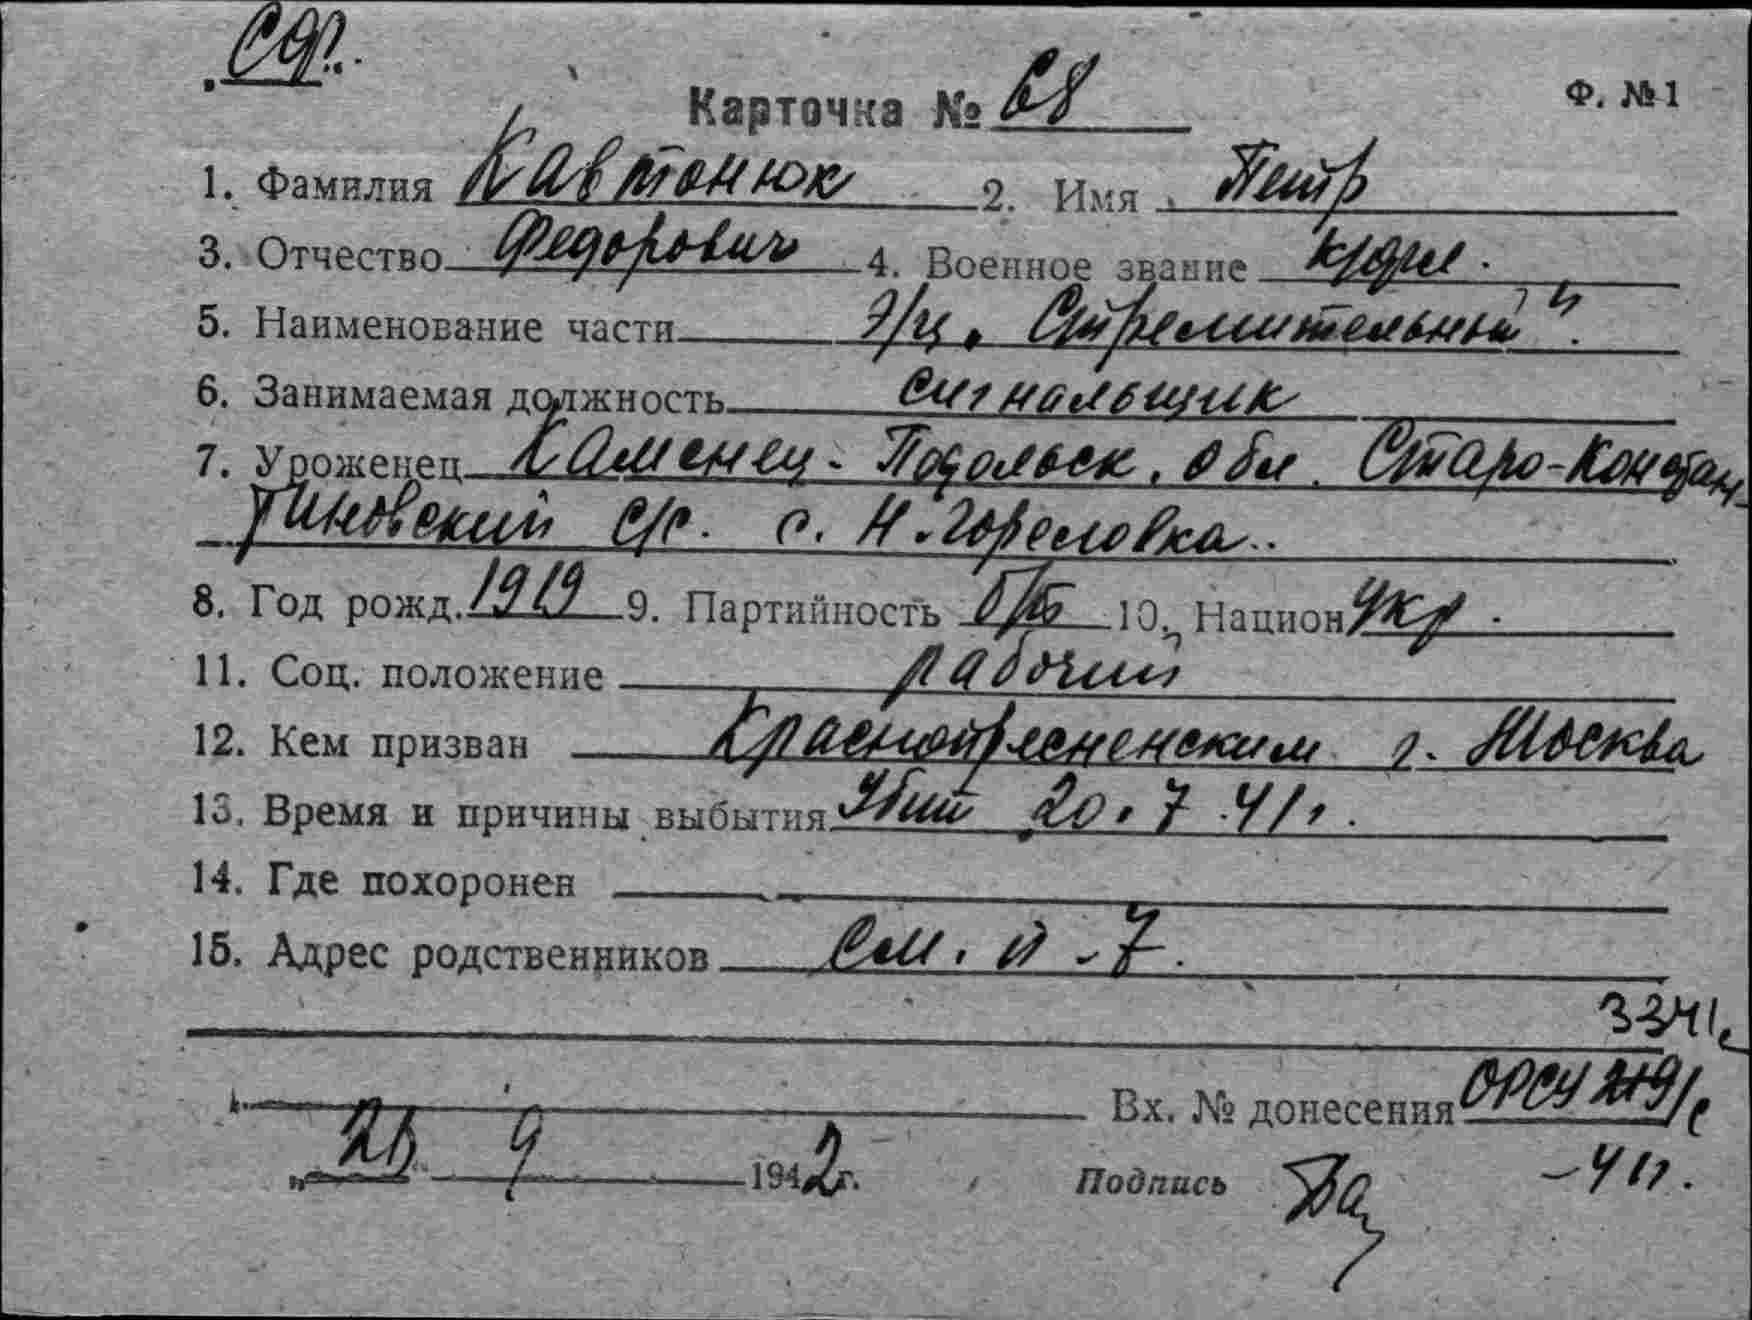 СФ.
Карточка № 68
Ф. №1
1. Фамилия Кавтонюк 2. Имя Петр
3. Отчество Федорович 4. Военное звание кр/фл.
5. Наименование части Э/м. Стремительный".
6. Занимаемая должность сигнальщик
7. Уроженец Каменец-Подольск. обл. Старо-Констан-
тиновский с/с. с. Н. Гореловка.
8. Год рожд. 1919 9. Партийность б/п 10. Национ Укр.
11. Соц. положение рабочий
12. Кем призван Краснопресненским г. Москва
13. Время и причины выбытия Убит 20.7.41г.
14. Где похоронен
15. Адрес родственников См. п-7.
3341с
Вх. № донесения ОРСУ 219/с
-41г.
9 1942г. Подпись